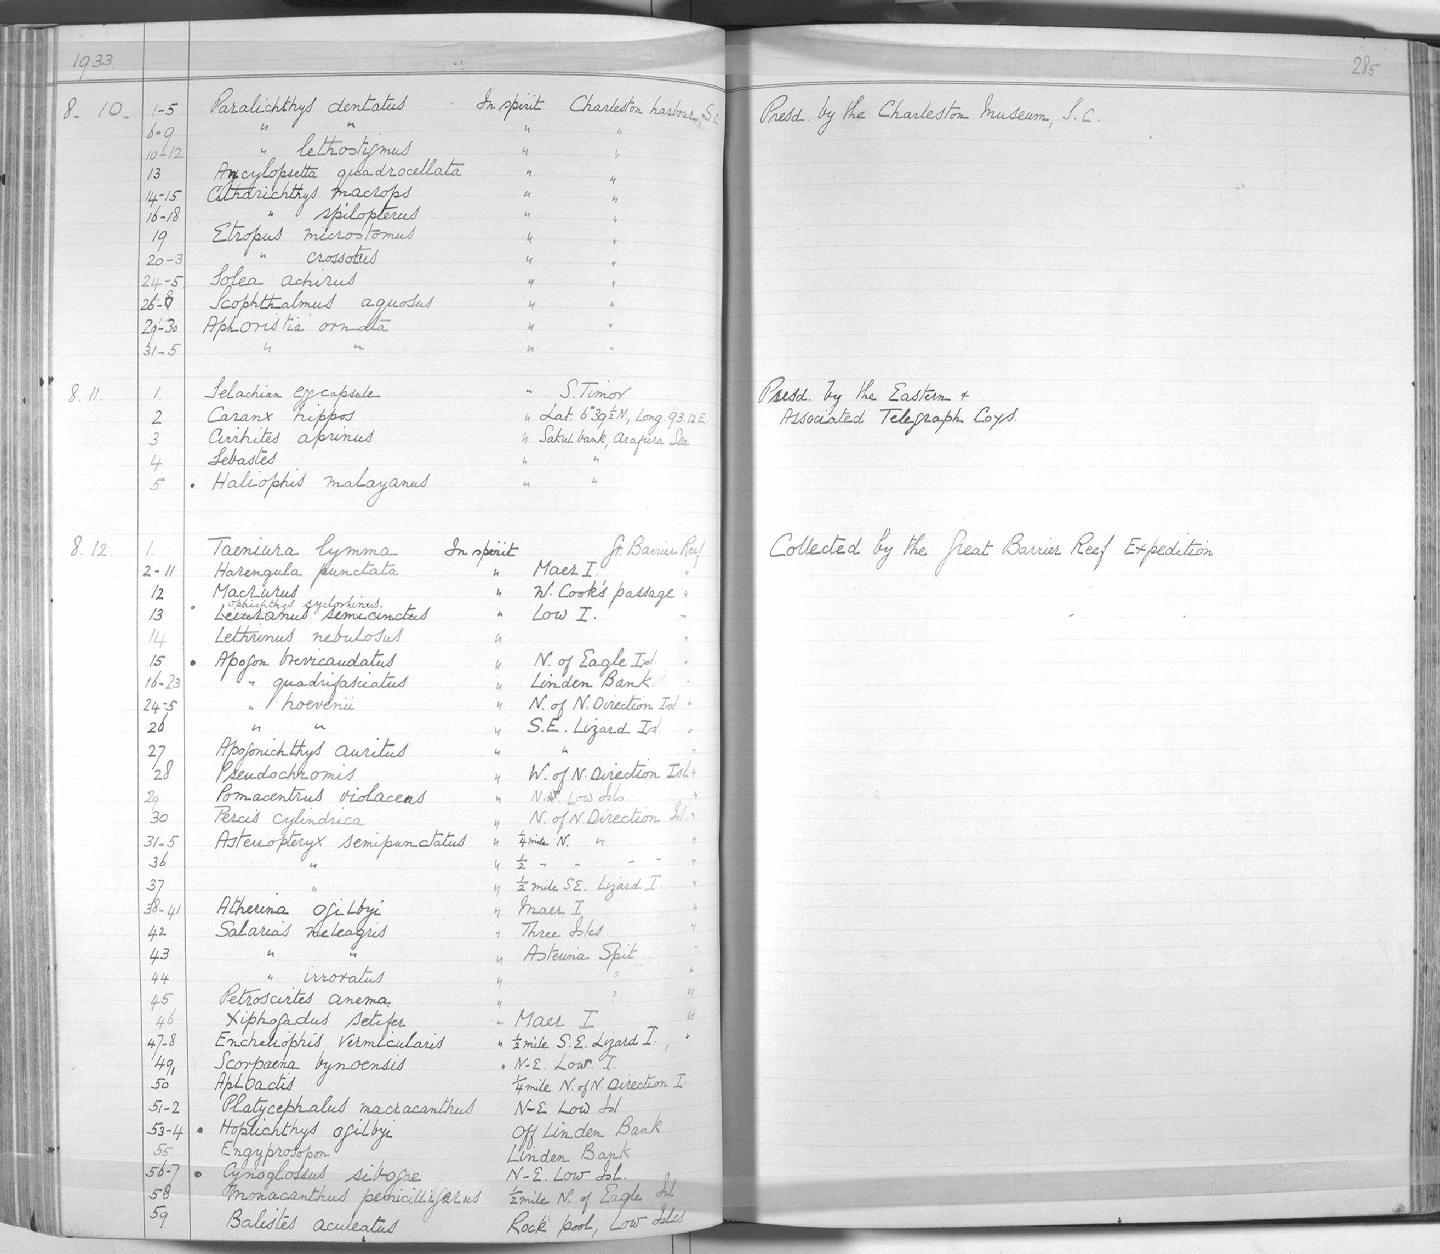 1933 285
8. 10. 1-5 Paralichthys dentatus In spirit Charleston harbour, S.C. Presd. by the Charleston Museum, S.C.
6-9 " " " "
10-12 " lethostigmus " "
13 Ancylopsetta quadrocellata " "
14-15 Citharichthys macrops " "
16-18 " spilopterus " "
19 Etropus microstomus " "
20-3 " crossotus " "
24-5 Solea achirus " "
26-8 Scophthalmus aquosus " "
29-30 Aphoristia ornata " "
31-5 " " " "
8. 11. 1. Selachian egg capsule " S. Timor Presd. by the Eastern +
2 Caranx hippos " Lat. 6°39½N, Long. 93.12 E. Associated Telegraph Coys.
3 Cirrhites aprinus " Sakul bank, Arafura Sea
4 Sebastes " "
5 • Haliophis malayanus " "
8. 12. 1. Taeniura lymma In spirit Gt Barrier Reef Collected by the Great Barrier Reef Expedition
2-11 Harengula punctata " Maer I. "
12 Macrurus " W. Cook's passage "
Ophichthys cyclorhinus
13 Leiuranus semicinctus " Low I. "
14 Lethrinus nebulosus " "
15 • Apogon brevicaudatus " N. of Eagle Isd. "
16-23 " quadrifasciatus " Linden Bank "
24-5 " hoevenii " N. of N. Direction Isd "
26 " " " S.E. Lizard Isd. "
27 Apogonichthys auritus " " "
28 Pseudochromis " W. of N. Direction Isl. "
29 Pomacentrus violaceus " N. Low Isls. "
30 Percis cylindrica " N. of N. Direction Isl. "
31-5 Asterropteryx semipunctatus " ¼ mile N. " "
36 " " ½ - - - - "
37 " " ½ mile S.E. Lizard I "
38-41 Atherina ogilbyi " Maer I "
42 Salarias meleagris " Three Isles "
43 " " " Asterina Spit "
44 " irroratus " ? "
45 Petroscirtes anema " ? "
46 Xiphogadus setifer " Maer I "
47-8 Encheliophis vermicularis " ½ mile S.E. Lizard I. "
49 Scorpaena bynoensis " N-E. Low I.
50 Aploactis ¼ mile N. of N Direction I.
51-2 Platycephalus macracanthus N-E Low Isl
53-4 • Hoplichthys ogilbyi Off Linden Bank
55 Engyprosopon Linden Bank
56-7 • Cynoglossus sibogae N-E. Low Isl.
58 Monacanthus penicilligerus ½ mile N. of Eagle Isl
59 Balistes aculeatus Rock pool, Low Isles